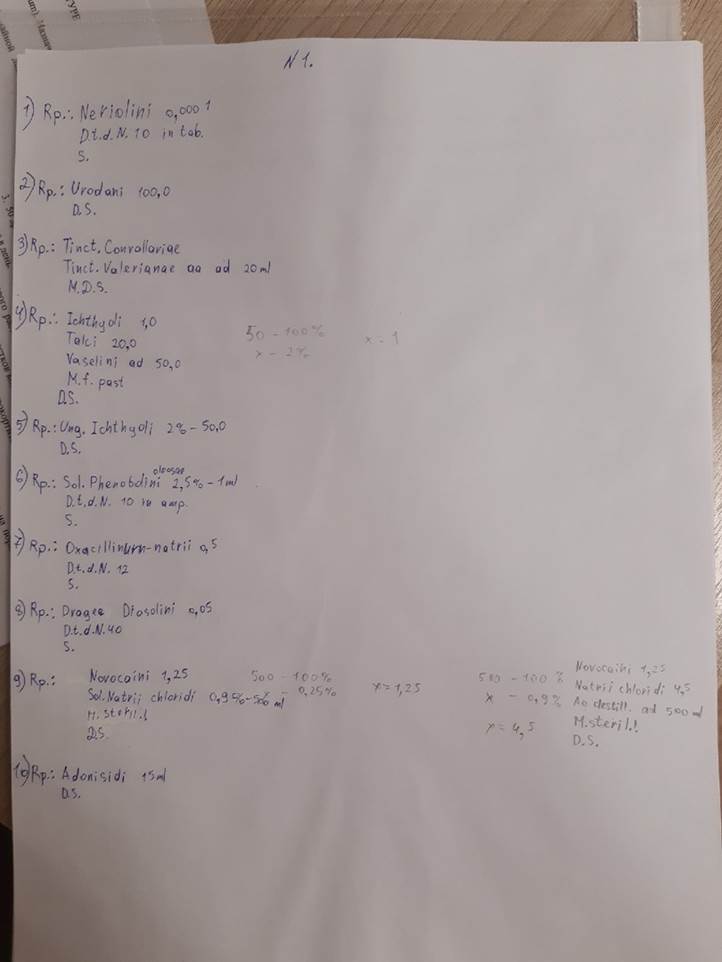 N 1.
1) Rp.: Neriolini 0,0001
D.t.d. N. 10 in tab.
S.
2) Rp.: Urodani 100,0
D.S.
3) Rp.: Tinct. Convallariae
Tinct. Valerianae aa ad 20 ml
M.D.S.
4) Rp.: Ichthyoli 1,0
Talci 20,0
Vaselini ad 50,0
M.f. past
D.S.
50 - 100%
x - 2%
x = 1
5) Rp.: Ung. Ichthyoli 2% - 50,0
D.S.
6) Rp.: Sol. Phenobolini oleosae 2,5% - 1 ml
D.t.d. N. 10 in amp.
S.
7) Rp.: Oxacillinum-natrii 0,5
D.t.d. N. 12
S.
8) Rp.: Dragee Diasolini 0,05
D.t.d. N. 40
S.
9) Rp.: Novocaini 1,25
Sol. Natrii chloridi 0,9% - 500 ml
M. steril.!
D.S.
500 - 100%
- 0,25%
x = 1,25
500 - 100%
x - 0,9%
x = 4,5
Novocaini 1,25
Natrii chloridi 4,5
Aq destill. ad 500 ml
M. steril.!
D.S.
10) Rp.: Adonisidi 15 ml
D.S.